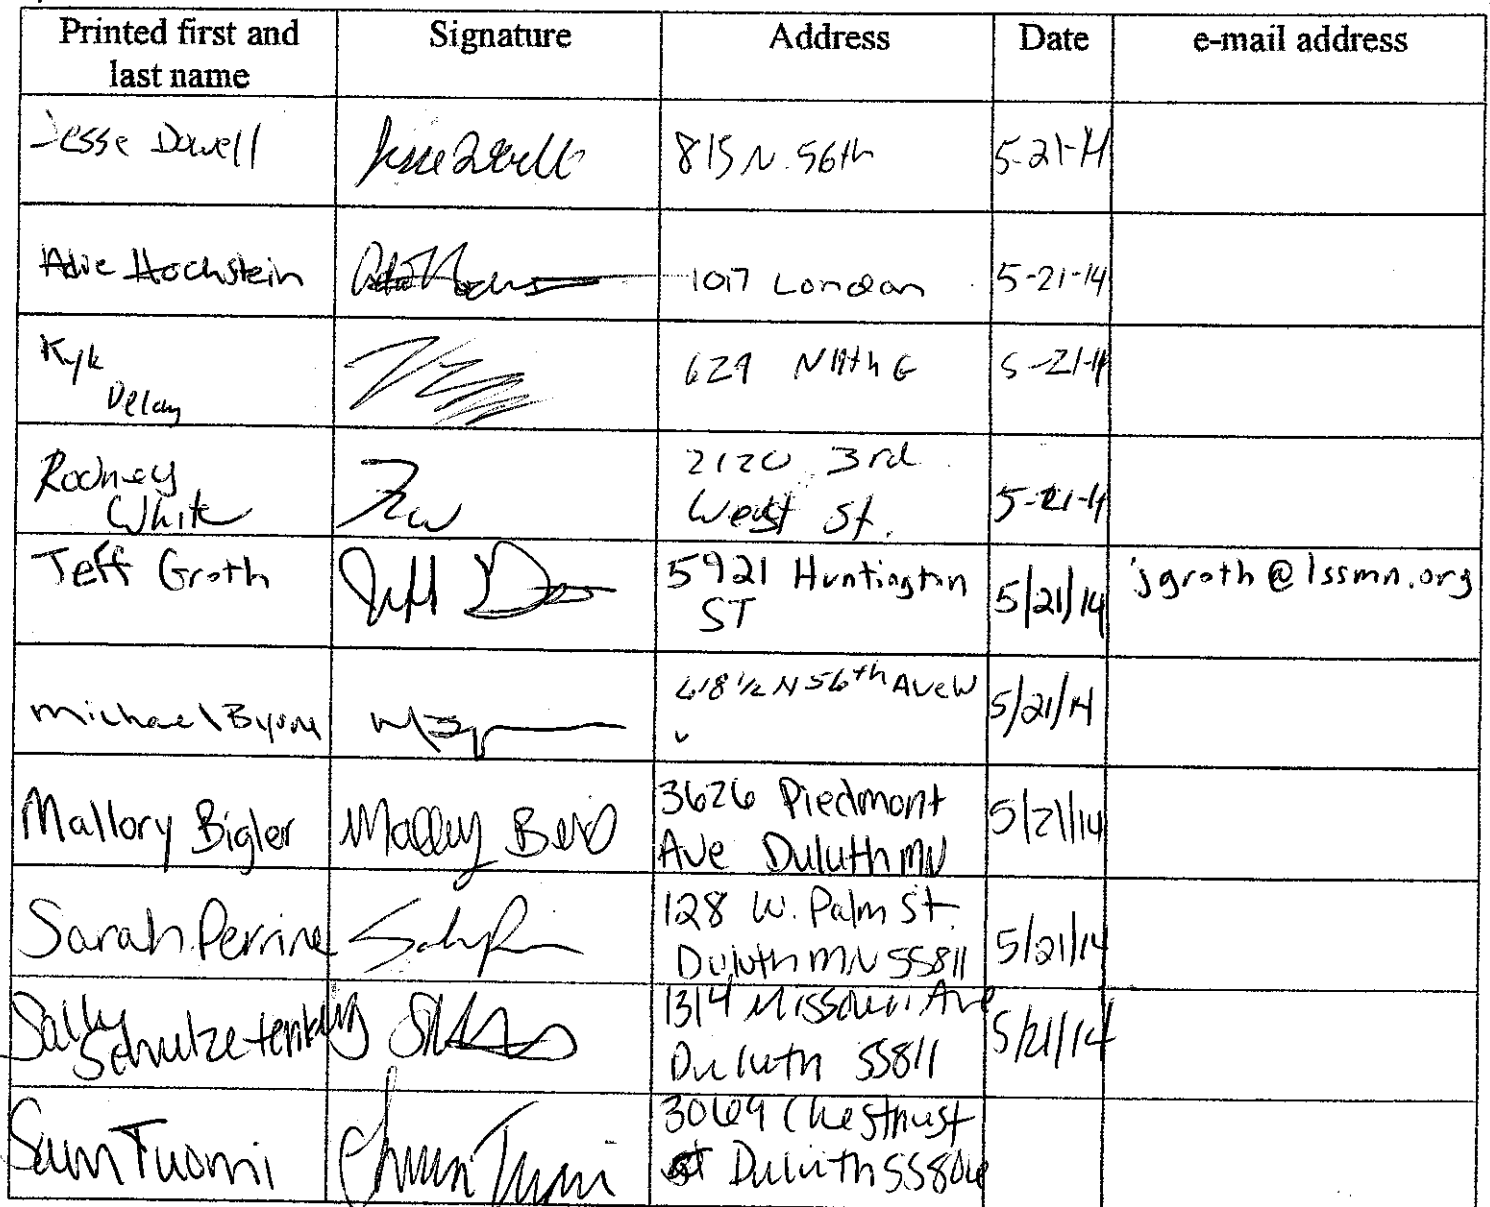 Printed first and last name | Signature | Address | Date | e-mail address
Jesse Dowell | 815 N. 56th | 5-21-14
Hochstein | 1017 London | 5-21-14
Kyle Delay | 629 N | 5-21-14
Rodney White | 2120 3rd West St. | 5-21-14
Jeff Groth | Jeff | 5921 Huntington ST | 5/21/14 | jgroth@lssmn.org
Michael Byrne | 618 1/2 N 56th Ave W | 5/21/14
Mallory Bigler | 3626 Piedmont Ave Duluth MN | 5/21/14
Sarah Perrine | 128 W. Palm St. Duluth MN 55811 | 5/21/14
Sally | 1314 Missouri Ave Duluth 55811 | 5/21/14
Sam Tuomi | Tuomi | 3069 Chestnust st Duluth 55806